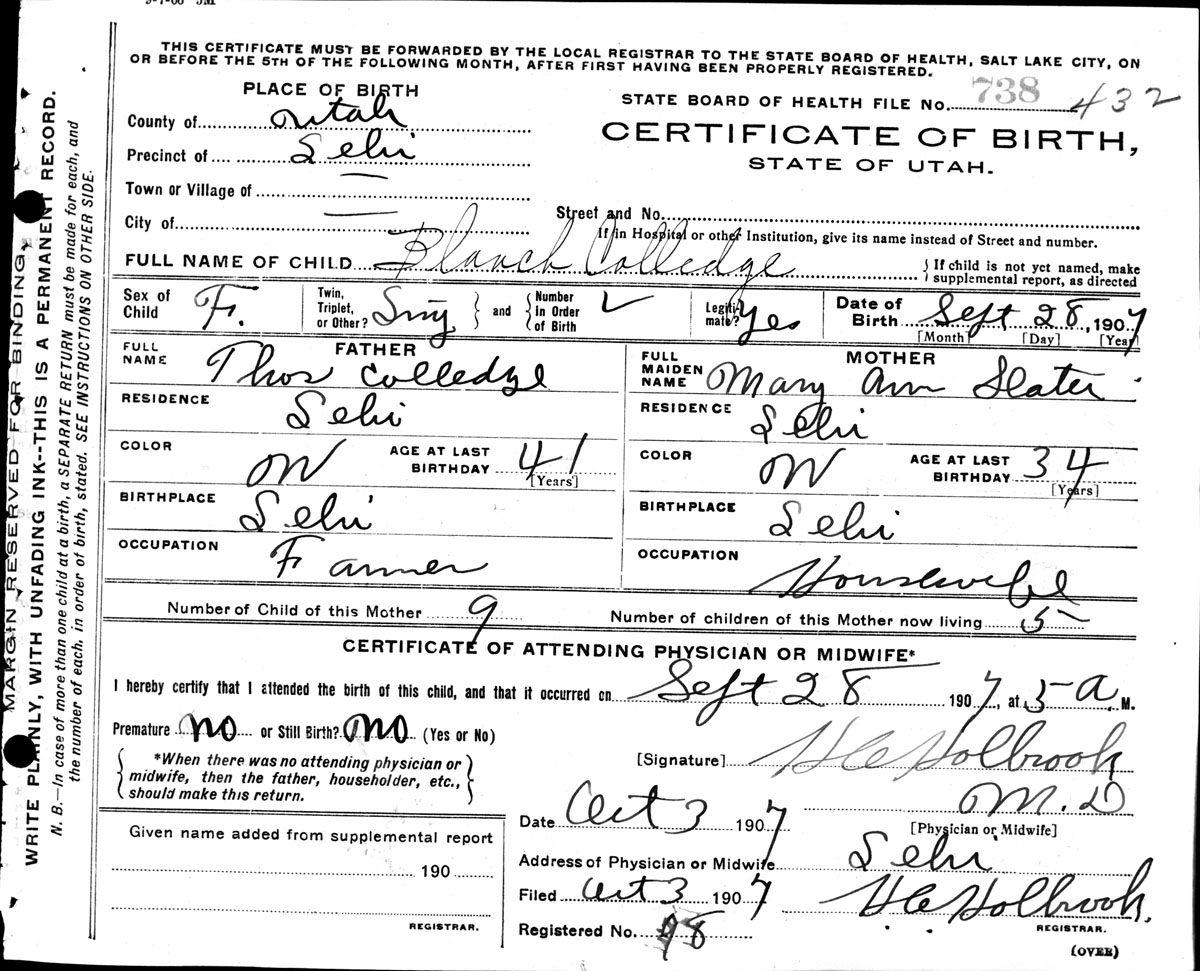 9-7-06 5M
THIS CERTIFICATE MUST BE FORWARDED BY THE LOCAL REGISTRAR TO THE STATE BOARD OF HEALTH, SALT LAKE CITY, ON
OR BEFORE THE 5TH OF THE FOLLOWING MONTH, AFTER FIRST HAVING BEEN PROPERLY REGISTERED.
PLACE OF BIRTH
STATE BOARD OF HEALTH FILE No. 738 432
County of Utah
CERTIFICATE OF BIRTH,
Precinct of Lehi
STATE OF UTAH.
Town or Village of —
City of —
Street and No.
If in Hospital or other Institution, give its name instead of Street and number.
FULL NAME OF CHILD Blanch Colledge { If child is not yet named, make supplemental report, as directed
Sex of Child F. Twin, Triplet, or Other? Sing } and { Number In Order of Birth Legitimate? Yes Date of Birth Sept 28, 1907
[Month] [Day] [Year]
FATHER
FULL NAME Thos Colledge
RESIDENCE Lehi
COLOR W AGE AT LAST BIRTHDAY 41
[Years]
BIRTHPLACE Lehi
OCCUPATION Farmer
MOTHER
FULL MAIDEN NAME Mary Ann Slater
RESIDENCE Lehi
COLOR W AGE AT LAST BIRTHDAY 34
[Years]
BIRTHPLACE Lehi
OCCUPATION Housewife
Number of Child of this Mother 9 Number of children of this Mother now living 5
CERTIFICATE OF ATTENDING PHYSICIAN OR MIDWIFE*
I hereby certify that I attended the birth of this child, and that it occurred on Sept 28 1907, at 5 a. M.
Premature no or Still Birth? no (Yes or No)
{ *When there was no attending physician or midwife, then the father, householder, etc., should make this return. }
[Signature] H C Holbrook
M. D
[Physician or Midwife]
Date Oct 3 1907
Address of Physician or Midwife Lehi
Filed Oct 3 1907 H C Holbrook.
REGISTRAR.
Registered No. 98
(OVER)
Given name added from supplemental report
190
REGISTRAR.
MARGIN RESERVED FOR BINDING.
WRITE PLAINLY, WITH UNFADING INK--THIS IS A PERMANENT RECORD.
N. B.—In case of more than one child at a birth, a SEPARATE RETURN must be made for each, and
the number of each, in order of birth, stated. SEE INSTRUCTIONS ON OTHER SIDE.